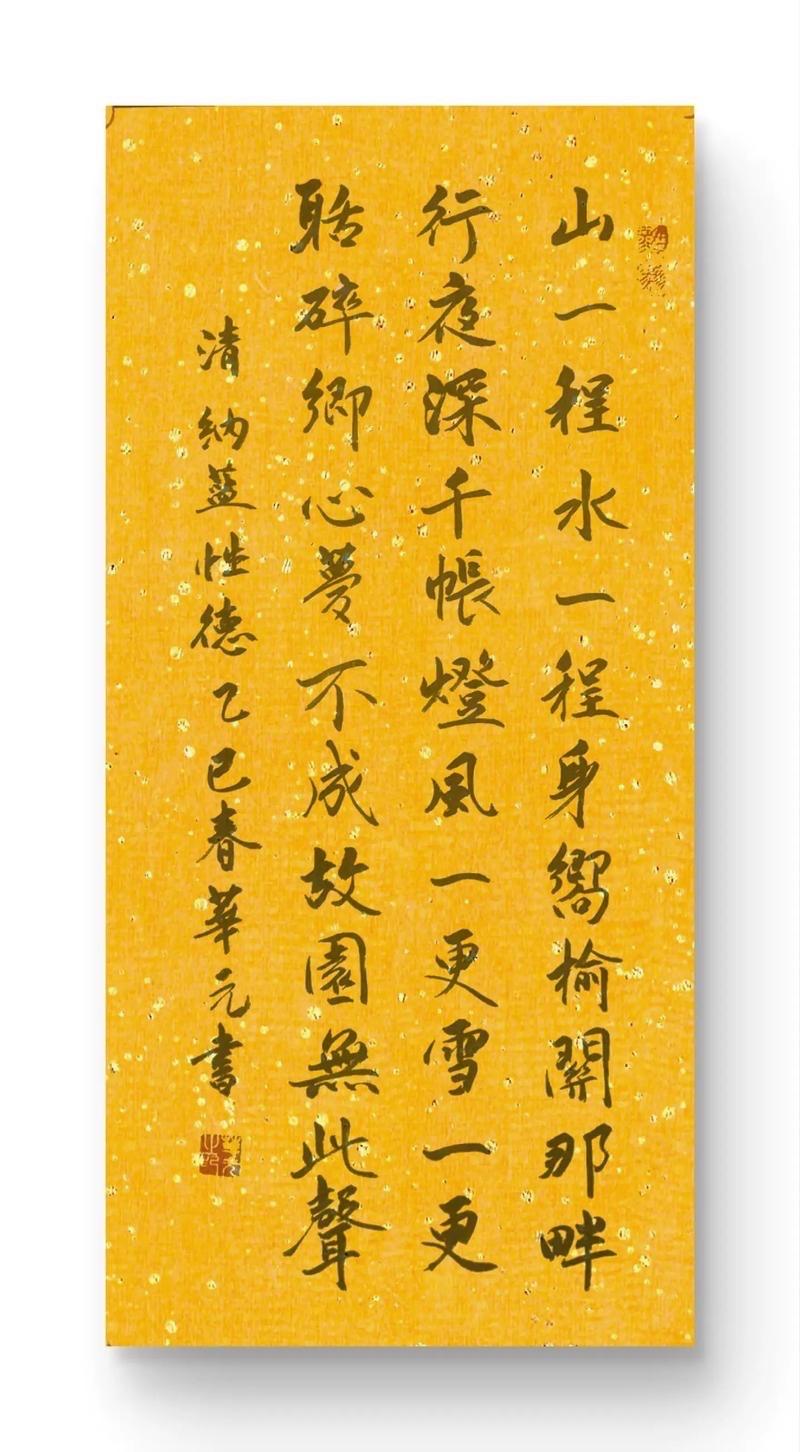 山一程水一程身嚮榆關那畔
行夜深千帳燈風一更雪一更
聒碎鄉心夢不成故園無此聲
清納蘭性德乙巳春華元書